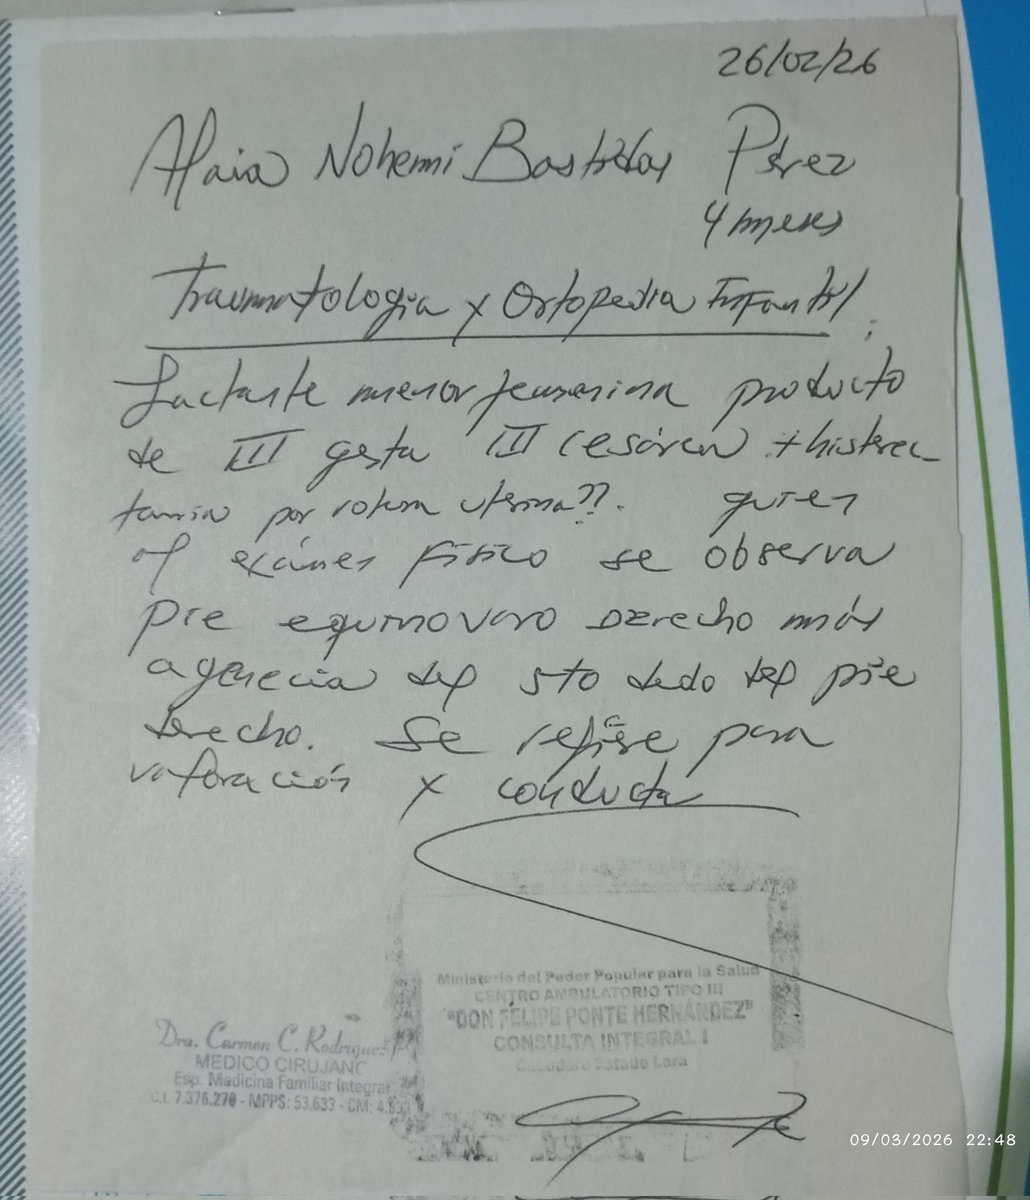 26/02/26
Alaia Nohemi Bastidas Pérez
4 meses
Traumatología y Ortopedia Infantil:
Lactante menor femenina producto
de III gesta III cesárea + histerec
tomia por rotura uterina??. quien
al exámen físico se observa
pie equinovaro derecho más
agenecia del 5to dedo del pie
derecho. Se refiere para
valoración y conducta
Ministerio del Poder Popular para la Salud
CENTRO AMBULATORIO TIPO III
"DON FELIPE PONTE HERNÁNDEZ"
CONSULTA INTEGRAL I
Cabudare Estado Lara
Dra. Carmen C. Rodríguez
MEDICO CIRUJANO
Esp. Medicina Familiar Integral
C.I. 7.376.270 - MPPS: 53.633 - CM: 4.8
09/03/2026 22:48